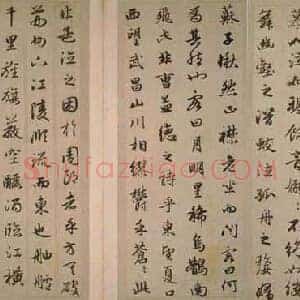 不絕如縷
舞幽壑之潛蛟泣孤舟之嫠婦
蘇子愀然正襟危坐而問客曰何
為其然也客曰月明星稀烏鵲南
飛此非曹孟德之詩乎東望夏口
西望武昌山川相繆鬱乎蒼蒼此
非孟德之困於周郎者乎方其破
荊州下江陵順流而東也舳艫
千里旌旗蔽空釃酒臨江橫